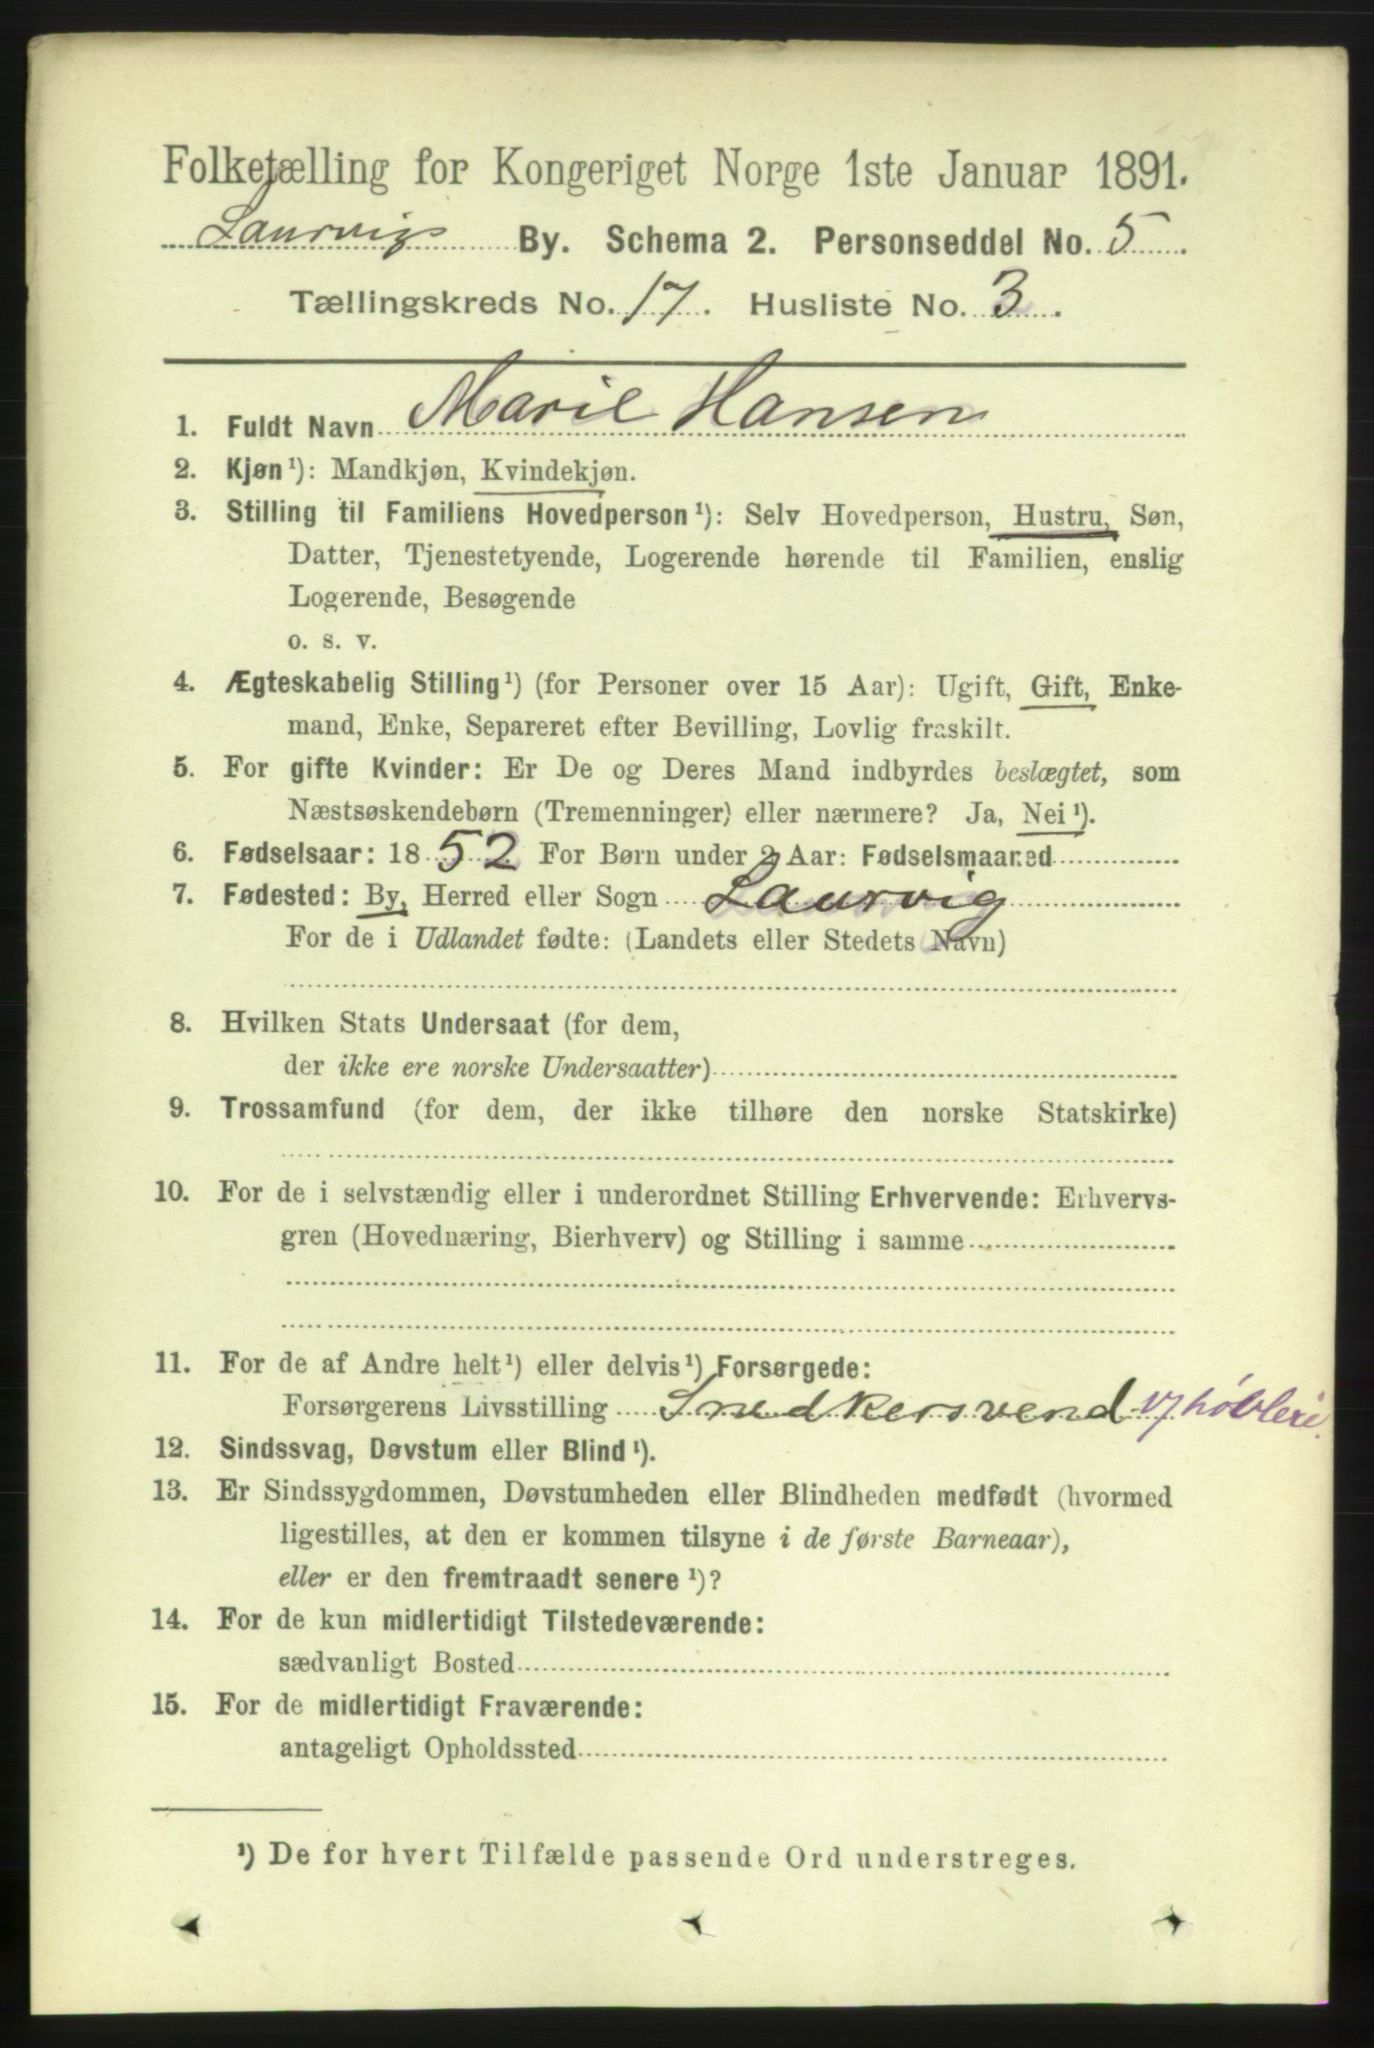 Folketælling for Kongeriget Norge 1ste Januar 1891.
Laurvigs By. Schema 2. Personseddel No. 5.
Tællingskreds No. 17. Husliste No. 3.
1. Fuldt Navn Marie Hansen
2. Kjøn ¹): Mandkjøn, Kvindekjøn.
3. Stilling til Familiens Hovedperson ¹): Selv Hovedperson, Hustru, Søn,
Datter, Tjenestetyende, Logerende hørende til Familien, enslig
Logerende, Besøgende
o. s. v.
4. Ægteskabelig Stilling ¹) (for Personer over 15 Aar): Ugift, Gift, Enke-
mand, Enke, Separeret efter Bevilling, Lovlig fraskilt.
5. For gifte Kvinder: Er De og Deres Mand indbyrdes beslægtet, som
Næstsøskendebørn (Tremenninger) eller nærmere? Ja, Nei ¹).
6. Fødselsaar: 1852 For Børn under 2 Aar: Fødselsmaaned
7. Fødested: By, Herred eller Sogn Laurvig
For de i Udlandet fødte: (Landets eller Stedets Navn)
8. Hvilken Stats Undersaat (for dem,
der ikke ere norske Undersaatter)
9. Trossamfund (for dem, der ikke tilhøre den norske Statskirke)
10. For de i selvstændig eller i underordnet Stilling Erhvervende: Erhvervs-
gren (Hovednæring, Bierhverv) og Stilling i samme
11. For de af Andre helt ¹) eller delvis ¹) Forsørgede:
Forsørgerens Livsstilling Snedkersvend v/ høvleri
12. Sindssvag, Døvstum eller Blind ¹).
13. Er Sindssygdommen, Døvstumheden eller Blindheden medfødt (hvormed
ligestilles, at den er kommen tilsyne i de første Barneaar),
eller er den fremtraadt senere ¹)?
14. For de kun midlertidigt Tilstedeværende:
sædvanligt Bosted
15. For de midlertidigt Fraværende:
antageligt Opholdssted
¹) De for hvert Tilfælde passende Ord understreges.